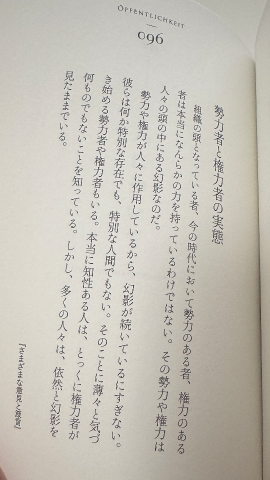 ÖFFENTLICHKEIT
096
勢力者と権力者の実態
組織の頭となっている者、今の時代において勢力のある者、権力のある
者は本当になんらかの力を持っているわけではない。その勢力や権力は
人々の頭の中にある幻影なのだ。
勢力や権力が人々に作用しているから、幻影が続いているにすぎない。
彼らは何か特別な存在でも、特別な人間でもない。そのことに薄々と気づ
き始める勢力者や権力者もいる。本当に知性ある人は、とっくに権力者が
何ものでもないことを知っている。しかし、多くの人々は、依然と幻影を
見たままでいる。
『さまざまな意見と箴言』